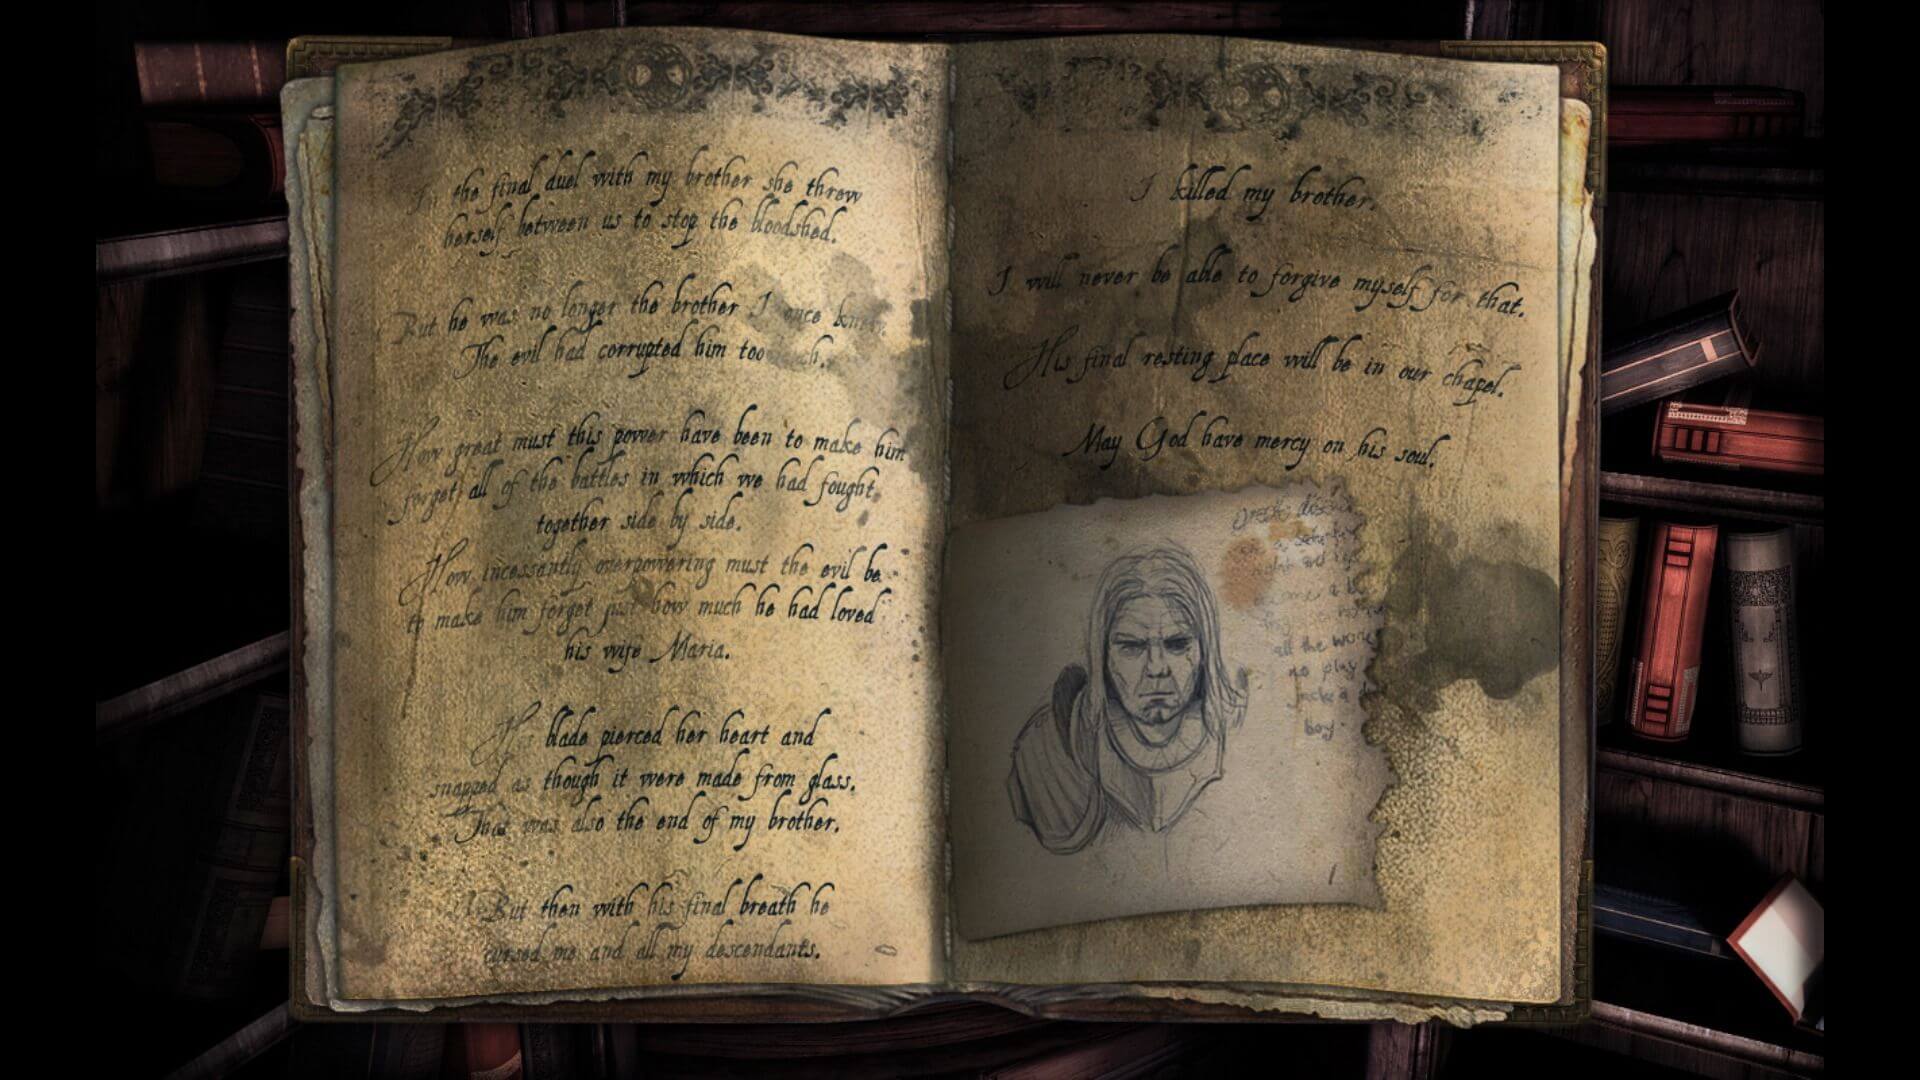 In the final duel with my brother she threw
herself between us to stop the bloodshed.
But he was no longer the brother I once knew.
The evil had corrupted him too much.
How great must this power have been to make him
forget all of the battles in which we had fought
together side by side.
How incessantly overpowering must the evil be
to make him forget just how much he had loved
his wife Maria.
His blade pierced her heart and
snapped as though it were made from glass.
That was also the end of my brother.
But then with his final breath he
cursed me and all my descendants.
I killed my brother.
I will never be able to forgive myself for that.
His final resting place will be in our chapel.
May God have mercy on his soul.
all the work
no play
make a
boy